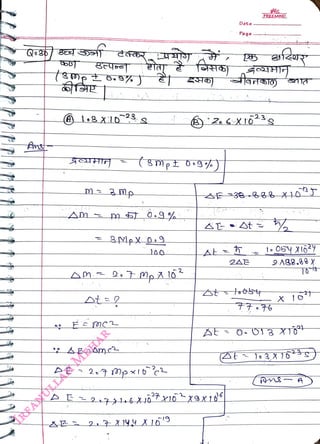 Date
Page
Q.26) उच्च ऊर्जा टक्कर प्रयोग में, एक अस्थिर
कण उत्पन्न होता है जिसका द्रव्यमान
(3mp ± 0.9%) है। इसका जीवनकाल ज्ञात
कीजिए।
(A) 1.3×10⁻²³ s (B) 2.6×10⁻²³ s
Ans-
द्रव्यमान = (3mp ± 0.9%)
m = 3mp
Δm = m का 0.9%
= 3mp × 0.9/100
Δm = 2.7 mp × 10⁻²
Δt = ?
∵ E = mc²
∵ ΔE = Δmc²
ΔE = 2.7 mp×10⁻²c²
ΔE = 2.7×1.6×10⁻²⁷×10⁻²×9×10¹⁶
ΔE = 2.7×14.4×10⁻¹³
ΔE = 38.888 ×10⁻¹³J
ΔE · Δt = ħ/2
Δt = ħ/2ΔE = 1.054×10⁻³⁴/2×38.88×10⁻¹³
Δt = 1.054/77.76 × 10⁻²¹
Δt = 0.013 ×10⁻²¹
Δt = 1.3×10⁻²³ s
Ans - A
IRFANULLAH